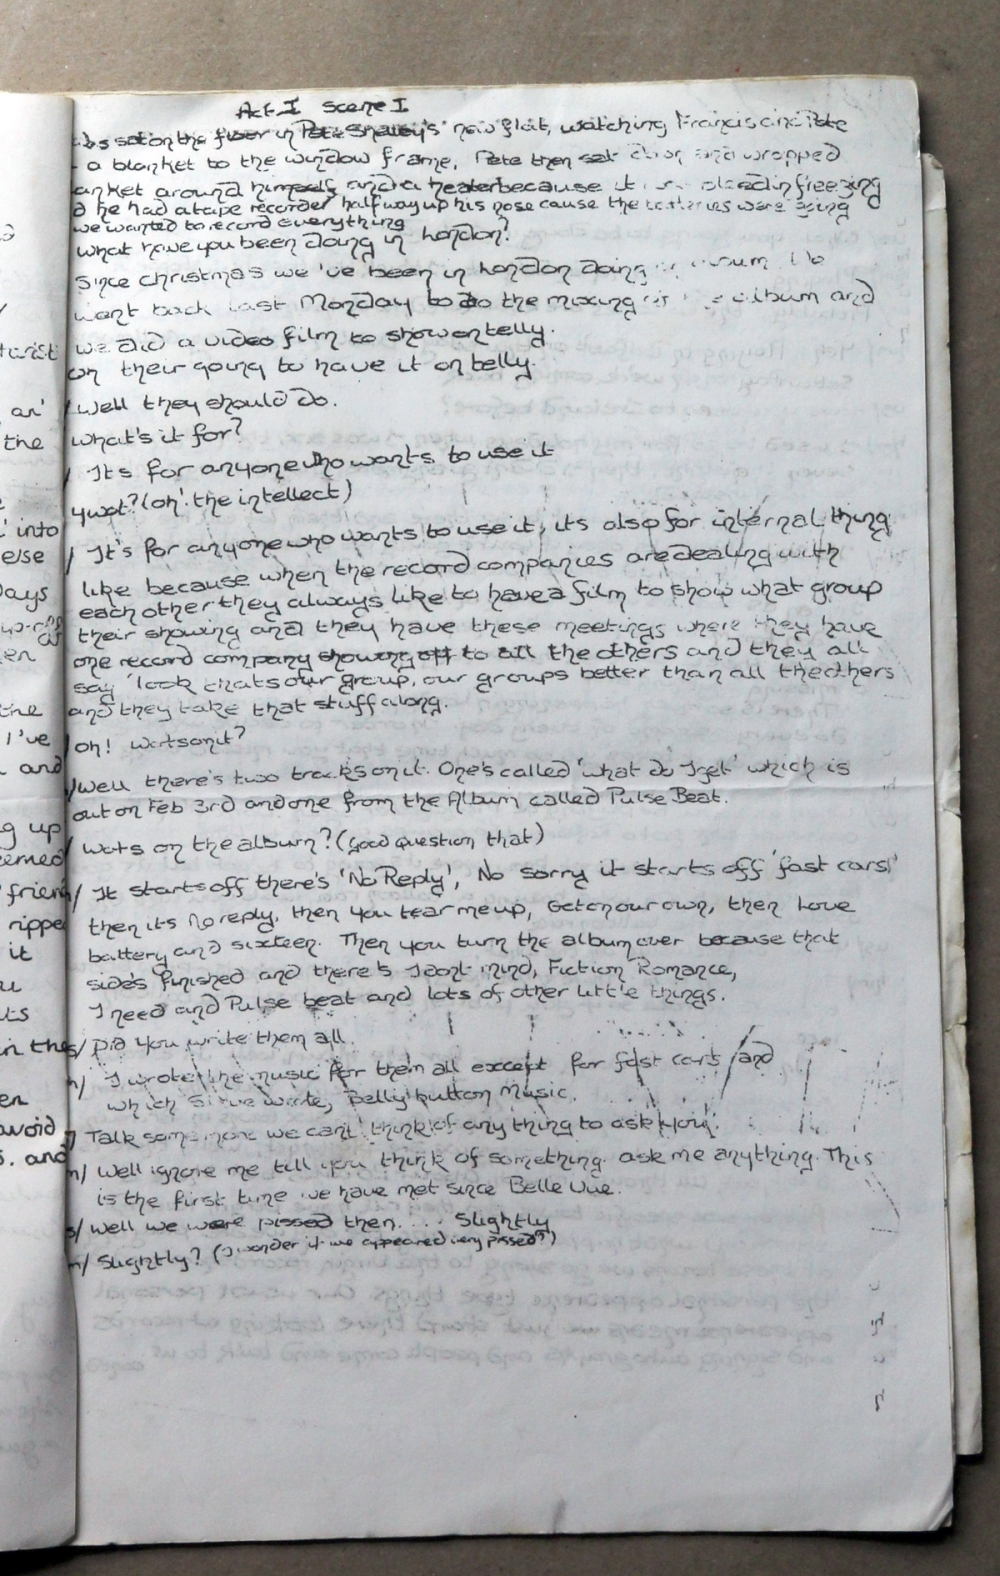 Act I Scene I
sat on the floor in Pete Shelley's new flat, watching Francis and Pete
a blanket to the window frame, Pete then sat down and wropped
anket around himself and a heater because it bleedin freezing
d he had a tape recorder halfway up his nose cause the batteries were going
we wanted to record everything
what have you been doing in London?
Since christmas we've been in London doing album
went back last Monday to do the mixing album and
we did a video film to show on telly.
on their going to have it on telly.
/ Well they should do.
what's it for?
/ It's for anyone who wants to use it
ywot? (oh! the intellect)
/ It's for anyone who wants to use it, its also for internal thing
like because when the record companies are dealing with
each other they always like to have a film to show what group
their showing and they have these meetings where they have
one record company showing off to all the others and they all
say 'look thats our group, our groups better than all the others
and they take that stuff along.
/ oh! watsonit?
/ Well there's two tracks on it. One's called 'what do I get' which is
out on Feb 3rd and one from the Album called Pulse Beat.
/ wots on the album? (good question that)
/ It starts off there's 'No Reply', No sorry it starts off 'fast cars'
then its No reply, then you tear me up, Get on our own, then Love
battery and sixteen. Then you turn the album over because that
side's finished and there's I dont mind, Fiction Romance,
I need and Pulse beat and lots of other little things.
s/ Did you write them all.
/ I wrote the music for them all except for fast cars and
which Steve wrote, Belly button Music.
/ Talk some more we cant think of any thing to ask you.
/ Well ignore me till you think of something. ask me anything. This
is the first time we have met since Belle Vue.
s/ Well we were pissed then.... Slightly
/ Slightly? (I wonder if we appeared very pissed?)
tarist
an'
the
into
else
Days
en
the
I've
and
g up
eemed
friend
ripped
it
u
uts
in the
en
avoid
s. and